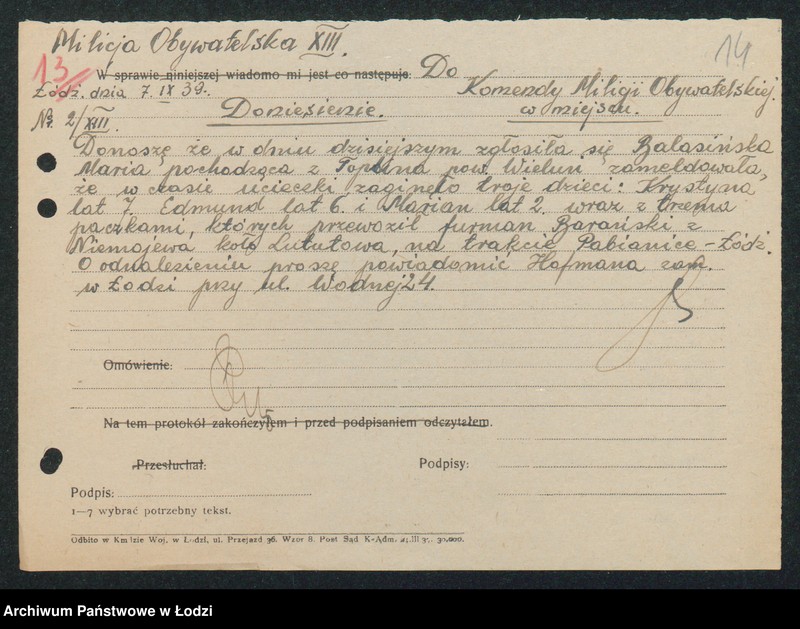 Milicja Obywatelska XIII.
14
13
W sprawie niniejszej wiadomo mi jest co następuje: Do
Łódź. dnia 7. IX 39. Komendy Milicji Obywatelskiej.
Nr. 2/XIII. Doniesienie. w miejscu.
Donoszę że w dniu dzisiejszym zgłosiła się Balasińska
Maria pochodząca z pow. Wieluń zameldowała,
że w czasie ucieczki zaginęło troje dzieci: Krystyna
lat 7. Edmund lat 6. i Marian lat 2. wraz z trzema
paczkami, których przewoził furman Barański z
Niemojewa koło Lututowa, na trakcie Pabianice – Łódź.
O odnalezieniu proszę powiadomić Hofmana zam.
w Łodzi przy ul. Wodnej 24.
Omówienie:
Na tem protokół zakończyłem i przed podpisaniem odczytałem.
Przesłuchał: Podpisy:
Podpis:
1—7 wybrać potrzebny tekst.
Odbito w Km dzie Woj. w Łodzi, ul. Przejazd 36. Wzór 8. Post Sąd K-Adm. III 30.000.
Archiwum Państwowe w Łodzi